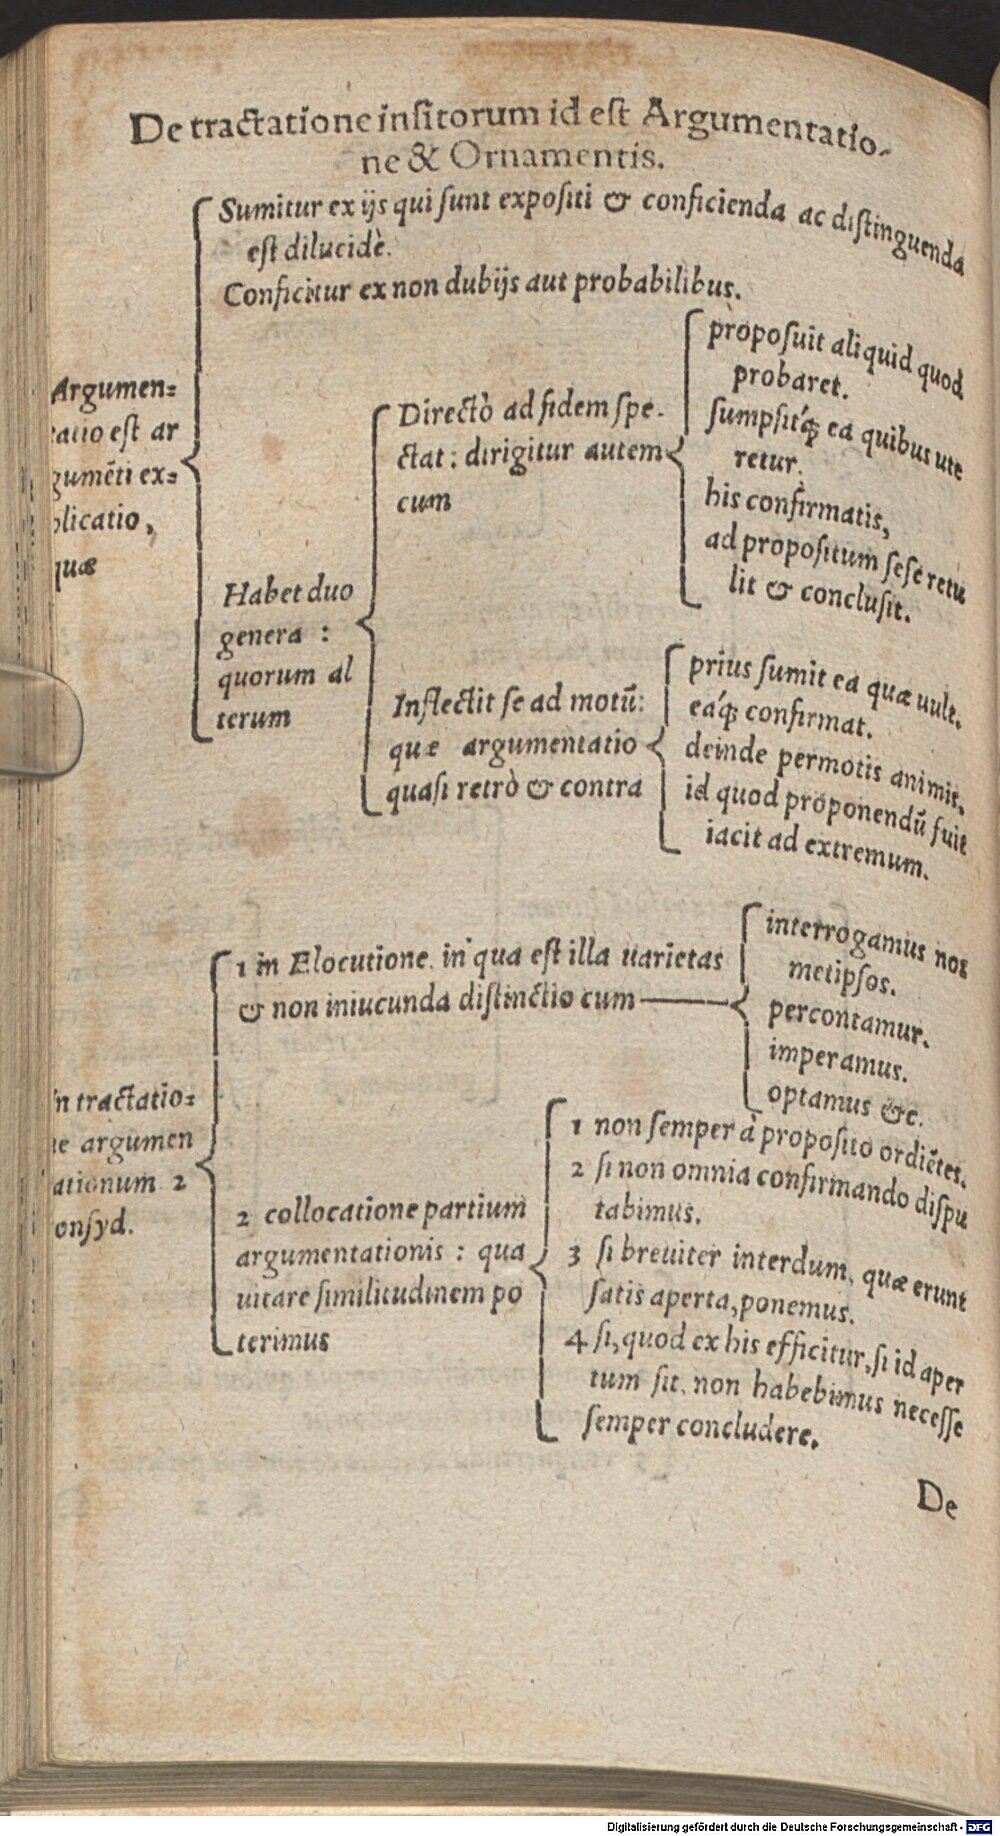 De tractatione insitorum id est Argumentatio-
ne & Ornamentis.
Sumitur ex ijs qui sunt expositi & conficienda ac distinguenda
est dilucidè.
Conficitur ex non dubijs aut probabilibus.
Argumen=
tatio est ar
gumẽti ex=
plicatio,
quæ
Habet duo
genera :
quorum al
terum
Directò ad fidem spe-
ctat : dirigitur autem
cum
proposuit aliquid quod
probaret.
sumpsitq́ꝫ ea quibus ute
retur.
his confirmatis,
ad propositum sese retu
lit & conclusit.
Inflectit se ad motũ:
quæ argumentatio
quasi retrò & contra
prius sumit ea quæ uult,
eaq́ꝫ confirmat.
deinde permotis animis,
id quod proponendũ fuit
iacit ad extremum.
In tractatio=
ne argumen
tationum 2
consyd.
1 in Elocutione. in qua est illa uarietas
& non iniucunda distinctio cum
interrogamus nos
metipsos.
percontamur.
imperamus.
optamus &c.
2 collocatione partium
argumentationis : qua
uitare similitudinem po
terimus
1 non semper à proposito ordiẽtes.
2 si non omnia confirmando dispu
tabimus.
3 si breuiter interdum, quæ erunt
satis aperta, ponemus.
4 si, quod ex his efficitur, si id aper
tum sit, non habebimus necesse
semper concludere.
De
Digitalisierung gefördert durch die Deutsche Forschungsgemeinschaft - DFG